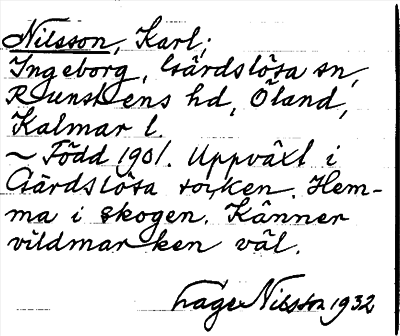 Nilsson, Karl;
Ingeborg, Gärdslösa sn,
Runstens hd, Öland,
Kalmar l.
~ Född 1901. Uppväxt i
Gärdslösa socken. Hem-
ma i skogen. Känner
vildmarken väl.
Lage Nilsson 1932